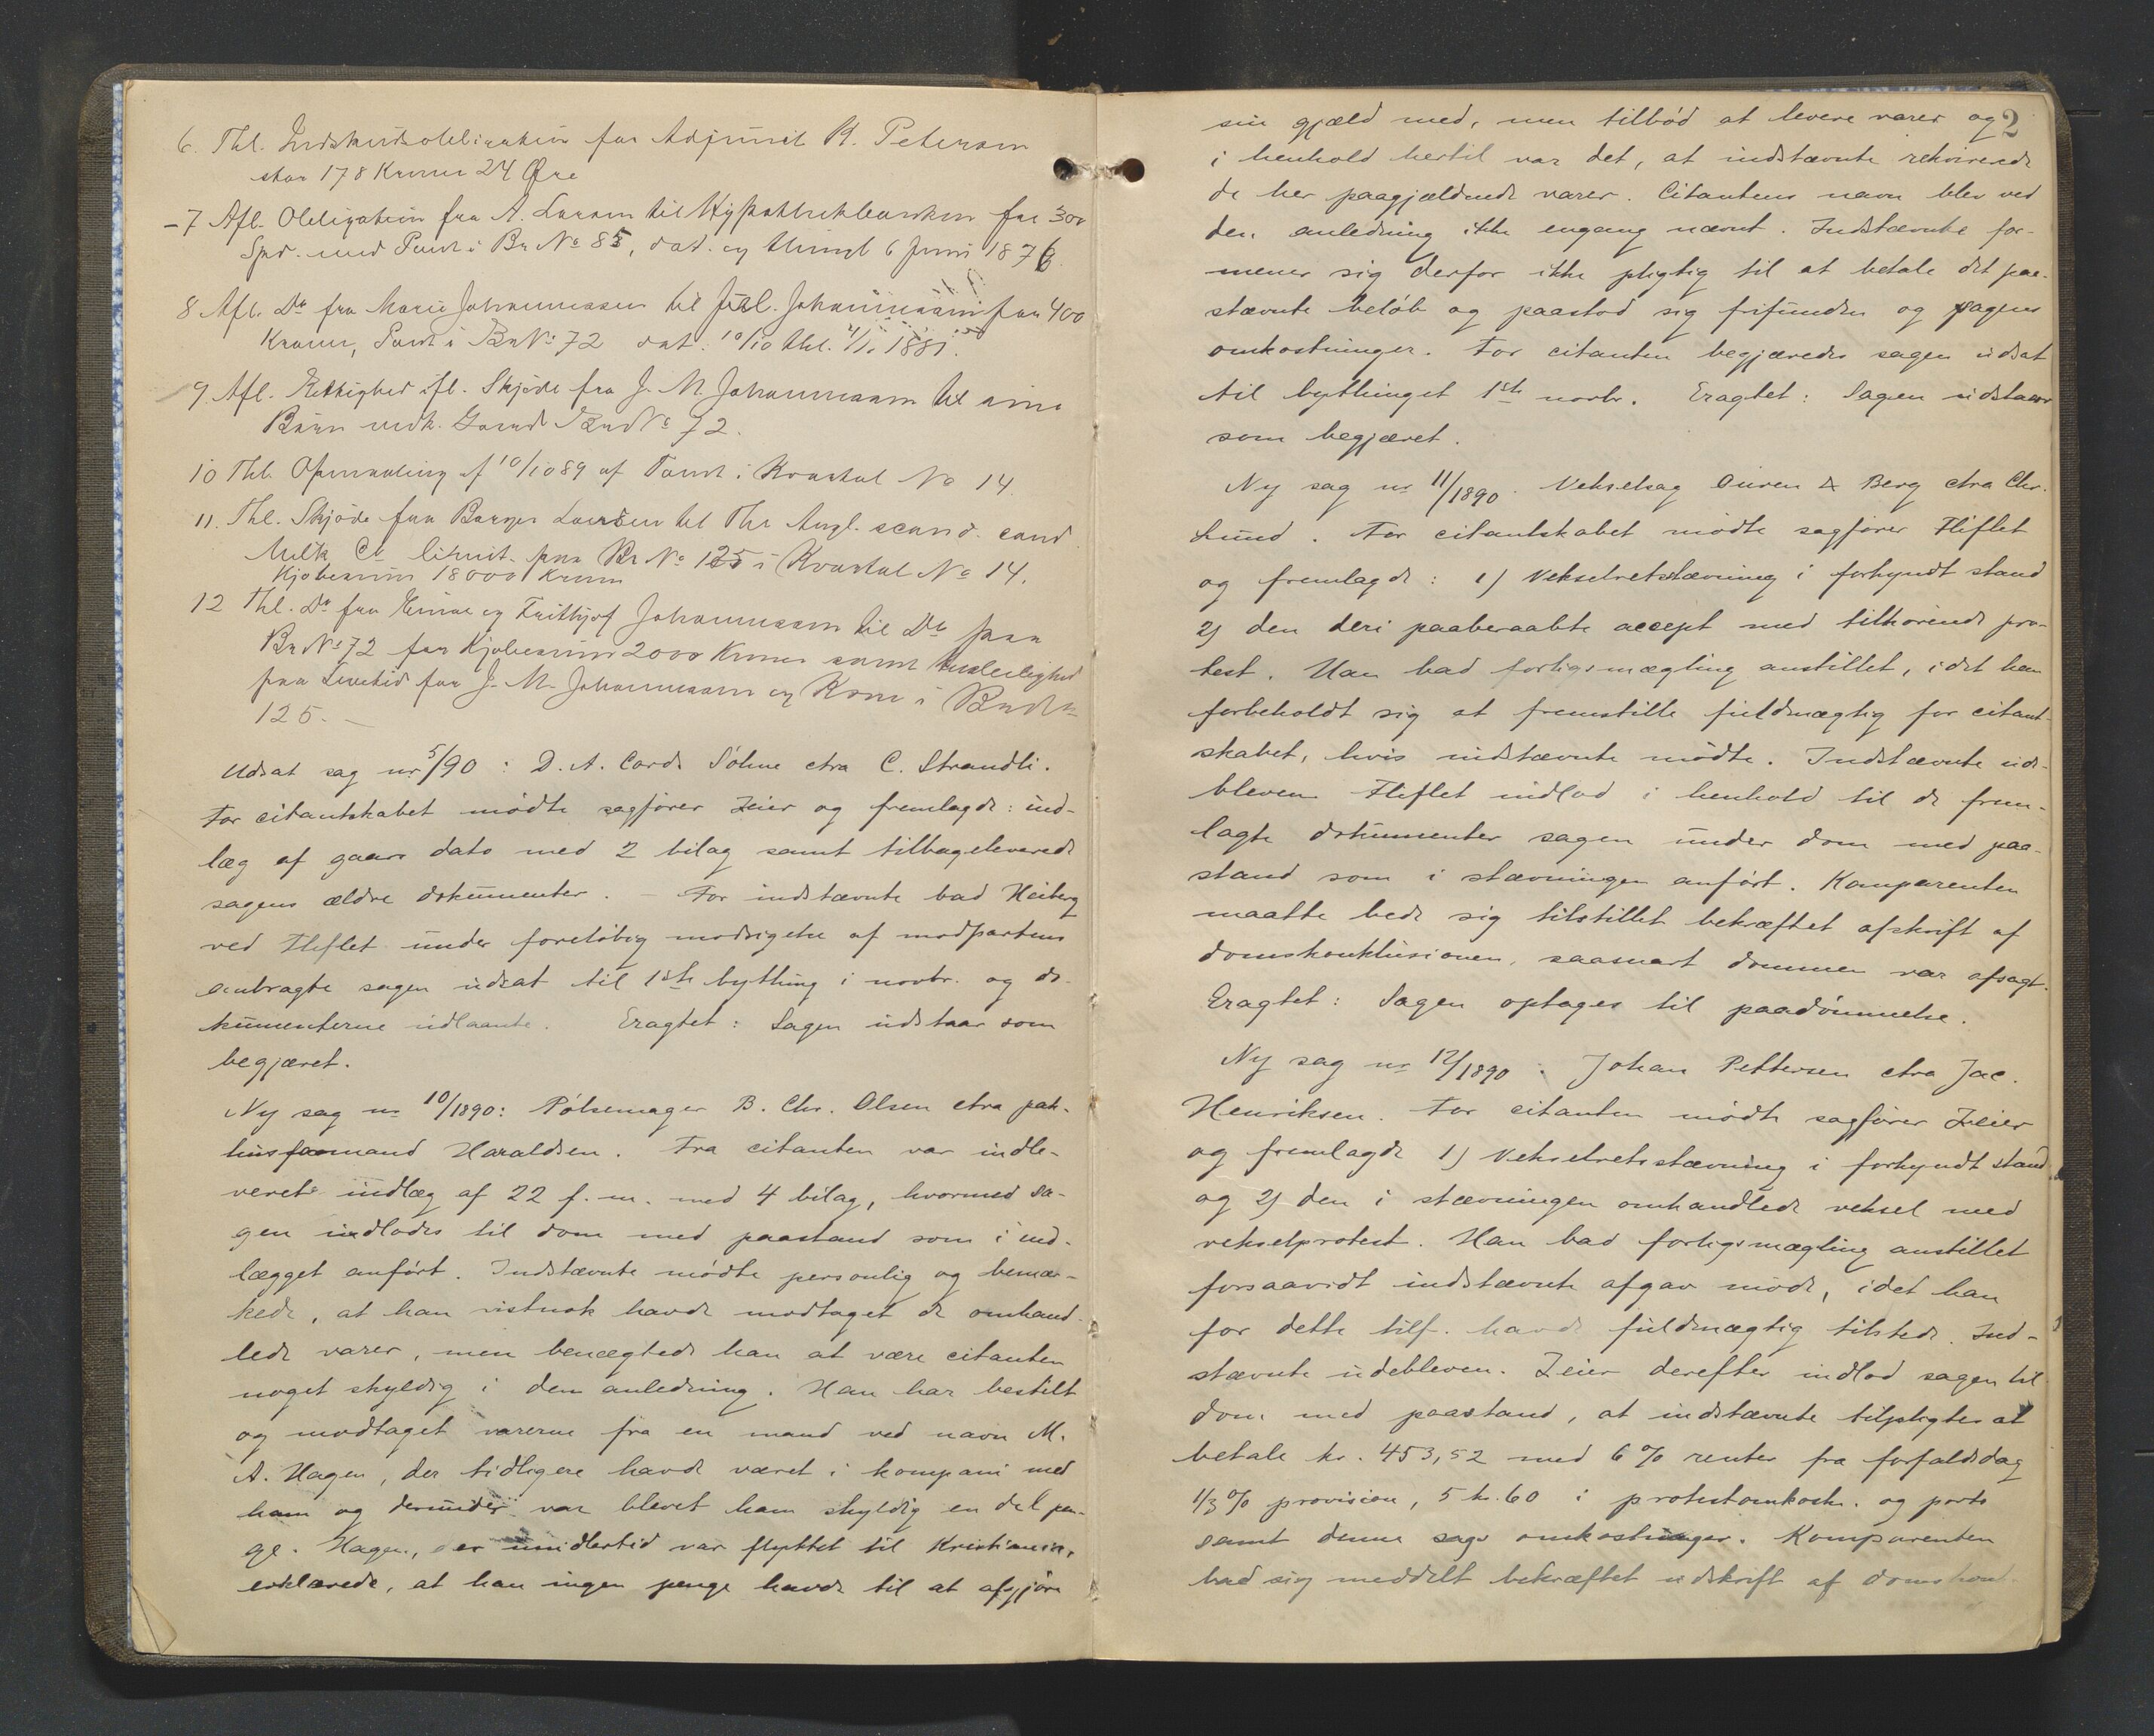 6. Thl. Indskudsobligation for Adjunct B. Petersen
stor 178 Kroner 24 Øre
7 Afl. Obligation fra A. Larsen til Hypothekbanken for 300
Spd. med Pant i Br No 85, dat. og thingl 6 Juni 1876.
8 Afl. Do fra Marie Johannessen til Joh. Johannessen for 400
Kroner, Pant i Br No 72 dat. 10/10 thl. 1881.
9. Afl. Rettighed ifl. Skjøde fra J. M. Johannessen til sine
Børn vedk. Gaard Br No 72.
10 Thl. Opmaaling af 10/10 89 af Tomt i Kvartal No 14.
11. Thl. Skjøde fra Borger Larsen til The Angl. scand. cond
Milk Co limit. paa Br No 125 i Kvartal No 14.
Kjøbesum 18000 Kroner
12 Thl. Do fra Emma og Frithjof Johannessen til Do paa
Br No 72 for Kjøbesum 2000 Kroner samt husleilighed
paa Livstid for J. M. Johannessen og Kone i Br No
125. —
Udsat sag nr 5/90 : D. A. Cords Söhne ctra C. Strandli.
For citantskabet mødte sagfører Zeier og fremlagde: ind-
læg af gaars dato med 2 bilag samt tilbageleverede
sagens ældre dokumenter. – For indstævnte bad Heiberg
ved Fliflet under foreløbig modsigelse af modpartens
anbragte sagen udsat til 1ste bything i novbr. og do-
kumenterne udlaante. Eragtet: Sagen udstaar som
begjæret.
Ny sag nr 10/1890: Pølsemager B. Chr. Olsen ctra pak-
husformand Haraldsen. Fra citanten var indle-
veret indlæg af 22 f. m. med 4 bilag, hvormed sa-
gen indlodes til dom med paastand som i ind-
lægget anført. Indstævnte mødte personlig og bemær-
kede, at han vistnok havde modtaget de omhand-
lede varer, men benægtede han at være citanten
noget skyldig i den anledning. Han har bestilt
og modtaget varerne fra en mand ved navn M.
A. Hagen, der tidligere havde været i kompani med
ham og derunder var blevet ham skyldig en del pen-
ge. Hagen, der imidlertid var flyttet til Kristiania,
erklærede, at han ingen penge havde til at afgjøre
2
sin gjæld med, men tilbød at levere varer og
i henhold hertil var det, at indstævnte rekvirerede
de her paagjældende varer. Citantens navn blev ved
den anledning ikke engang nævnt. Indstævnte for-
mener sig derfor ikke pligtig til at betale det paa-
stævnte beløb og paastod sig frifunden og sagens
omkostninger. For citanten begjæredes sagen udsat
til bythinget 1ste novbr. Eragtet: Sagen udstaar
som begjæret.
Ny sag nr 11/1890. Vekselsag Ouren & Berg ctra Chr.
Lund. For citantskabet mødte sagfører Fliflet
og fremlagde: 1) Vekselretsstævning i forkyndt stand
2) den deri paaberaabte accept med tilhørende pro-
test. Han bad forligsmægling anstillet, idet han
forbeholdt sig at fremstille fuldmægtig for citant-
skabet, hvis indstævnte mødte. Indstævnte ude-
bleven. Fliflet indlod i henhold til de frem-
lagte dokumenter sagen under dom med paa-
stand som i stævningen anført. Komparenten
maatte bede sig tilstillet bekræftet afskrift af
domskonklusionen, saasnart dommen var afsagt.
Eragtet: Sagen optages til paadømmelse.
Ny sag nr 12/1890. Johan Pettersen ctra Jac.
Henriksen. For citanten mødte sagfører Zeier
og fremlagde 1) Vekselretsstævning i forkyndt stand
og 2) den i stævningen omhandlede veksel med
vekselprotest. Han bad forligsmægling anstillet
forsaavidt indstævnte afgav møde, idet han
for dette tilf. havde fuldmægtig tilstede. Ind-
stævnte udebleven. Zeier derefter indlod sagen til
dom med paastand, at indstævnte tilpligtes at
betale kr. 453,52 med 6 % renter fra forfaldsdag
1/3 % provision, 5 kr. 60 i protestomkostn. og porto
samt denne sags omkostninger. Komparenten
bad sig meddelt bekræftet udskrift af domskon-